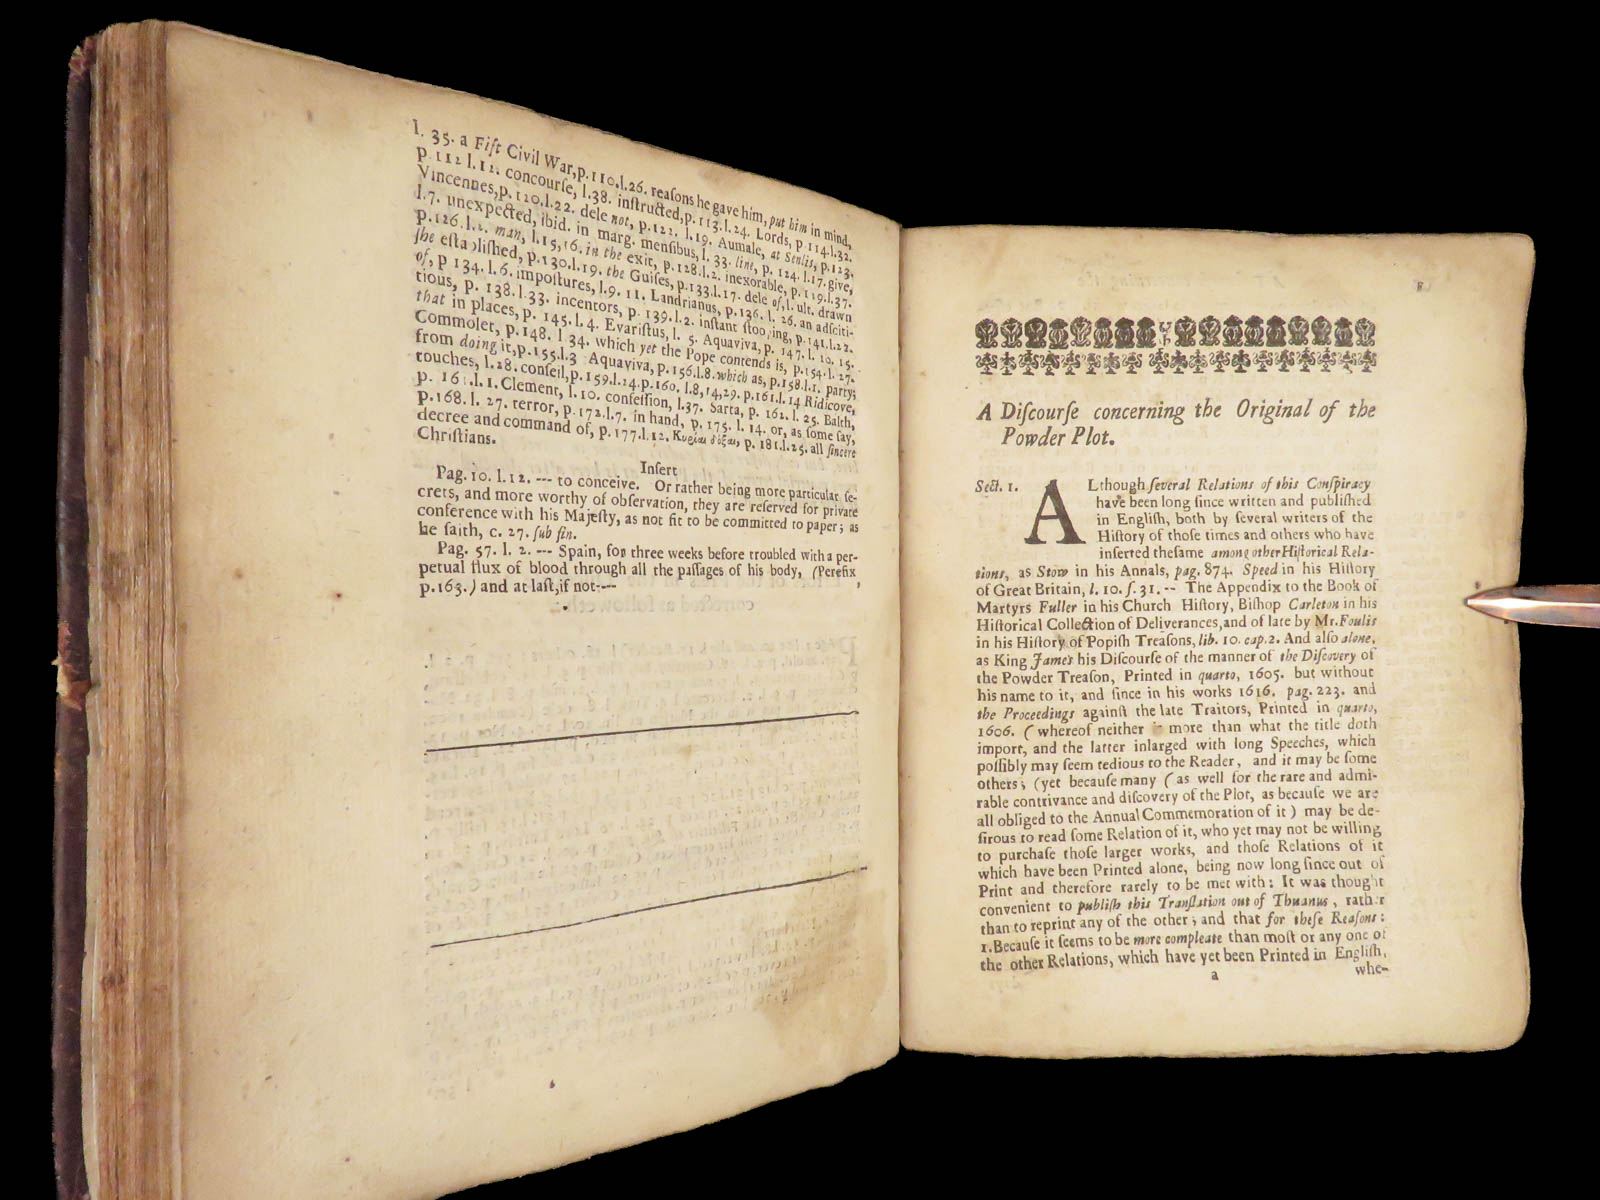 l. 35. a Fift Civil War, p. 110. l. 26. reaſons he gave him, put him in mind,
p. 112 l. 12. concourſe, l. 38. inſtructed, p. 113. l. 24. Lords, p. 114. l. 32.
Vincennes, p. 120. l. 22. dele not, p. 122. l. 19. Aumale, at Senlis, p. 123.
l. 7. unexpected, ibid. in marg. menſibus, l. 33. line, p. 124. l. 17. give,
p. 126. l. 2. man, l. 15, 16. in the exit, p. 128. l. 2. inexorable, p. 119. l. 37.
ſhe eſtabliſhed, p. 130. l. 19. the Guiſes, p. 133. l. 17. dele of, l. ult. drawn
of, p 134. l. 6. impoſtures, l. 9. 11. Landrianus, p. 136. l. 26. an adſciti-
tious, p. 138. l. 33. incentors, p. 139. l. 2. inſtant ſtooping, p. 141. l. 22.
that in places, p. 145. l. 4. Evariſtus, l. 5. Aquaviva, p. 147. l. 10. 15.
Commolet, p. 148. l 34. which yet the Pope contends is, p. 154. l. 27.
from doing it, p. 155. l. 3 Aquaviva, p. 156. l. 8. which as, p. 158. l. 1. party;
touches, l. 28. conſeil, p. 159. l. 24. p. 160. l. 8, 14, 29. p. 161. l. 14 Ridicove,
p. 161. l. 1. Clement, l. 10. confeſſion, l. 37. Sarta, p. 162. l. 25. Baſth,
p. 168. l. 27. terror, p. 172. l. 7. in hand, p. 175. l. 14. or, as ſome ſay,
decree and command of, p. 177. l. 12. p. 181. l. 25. all ſincere
Chriſtians.
Inſert
Pag. 10. l. 12. --- to conceive. Or rather being more particular ſe-
crets, and more worthy of obſervation, they are reſerved for private
conference with his Majeſty, as not fit to be committed to paper; as
he ſaith, c. 27. ſub fin.
Pag. 57. l. 2. --- Spain, for three weeks before troubled with a per-
petual flux of blood through all the paſſages of his body, (Perefix
p. 163.) and at laſt, if not----
A Diſcourſe concerning the Original of the
Powder Plot.
Sect. 1. ALthough ſeveral Relations of this Conſpiracy
have been long ſince written and publiſhed
in Engliſh, both by ſeveral writers of the
Hiſtory of thoſe times and others who have
inſerted theſame among other Hiſtorical Rela-
tions, as Stow in his Annals, pag. 874. Speed in his Hiſtory
of Great Britain, l. 10. ſ. 31. -- The Appendix to the Book of
Martyrs Fuller in his Church Hiſtory, Biſhop Carleton in his
Hiſtorical Collection of Deliverances, and of late by Mr. Foulis
in his Hiſtory of Popiſh Treaſons, lib. 10. cap. 2. And alſo alone,
as King James his Diſcourſe of the manner of the Diſcovery of
the Powder Treaſon, Printed in quarto, 1605. but without
his name to it, and ſince in his works 1616. pag. 223. and
the Proceedings againſt the late Traitors, Printed in quarto,
1606. (whereof neither is more than what the title doth
import, and the latter inlarged with long Speeches, which
poſſibly may ſeem tedious to the Reader, and it may be ſome
others; (yet becauſe many (as well for the rare and admi-
rable contrivance and diſcovery of the Plot, as becauſe we are
all obliged to the Annual Commemoration of it) may be de-
ſirous to read ſome Relation of it, who yet may not be willing
to purchaſe thoſe larger works, and thoſe Relations of it
which have been Printed alone, being now long ſince out of
Print and therefore rarely to be met with: It was thought
convenient to publiſh this Tranſlation out of Thuanus, rather
than to reprint any of the other; and that for theſe Reaſons:
1. Becauſe it ſeems to be more compleate than moſt or any one of
the other Relations, which have yet been Printed in Engliſh,
a whe-